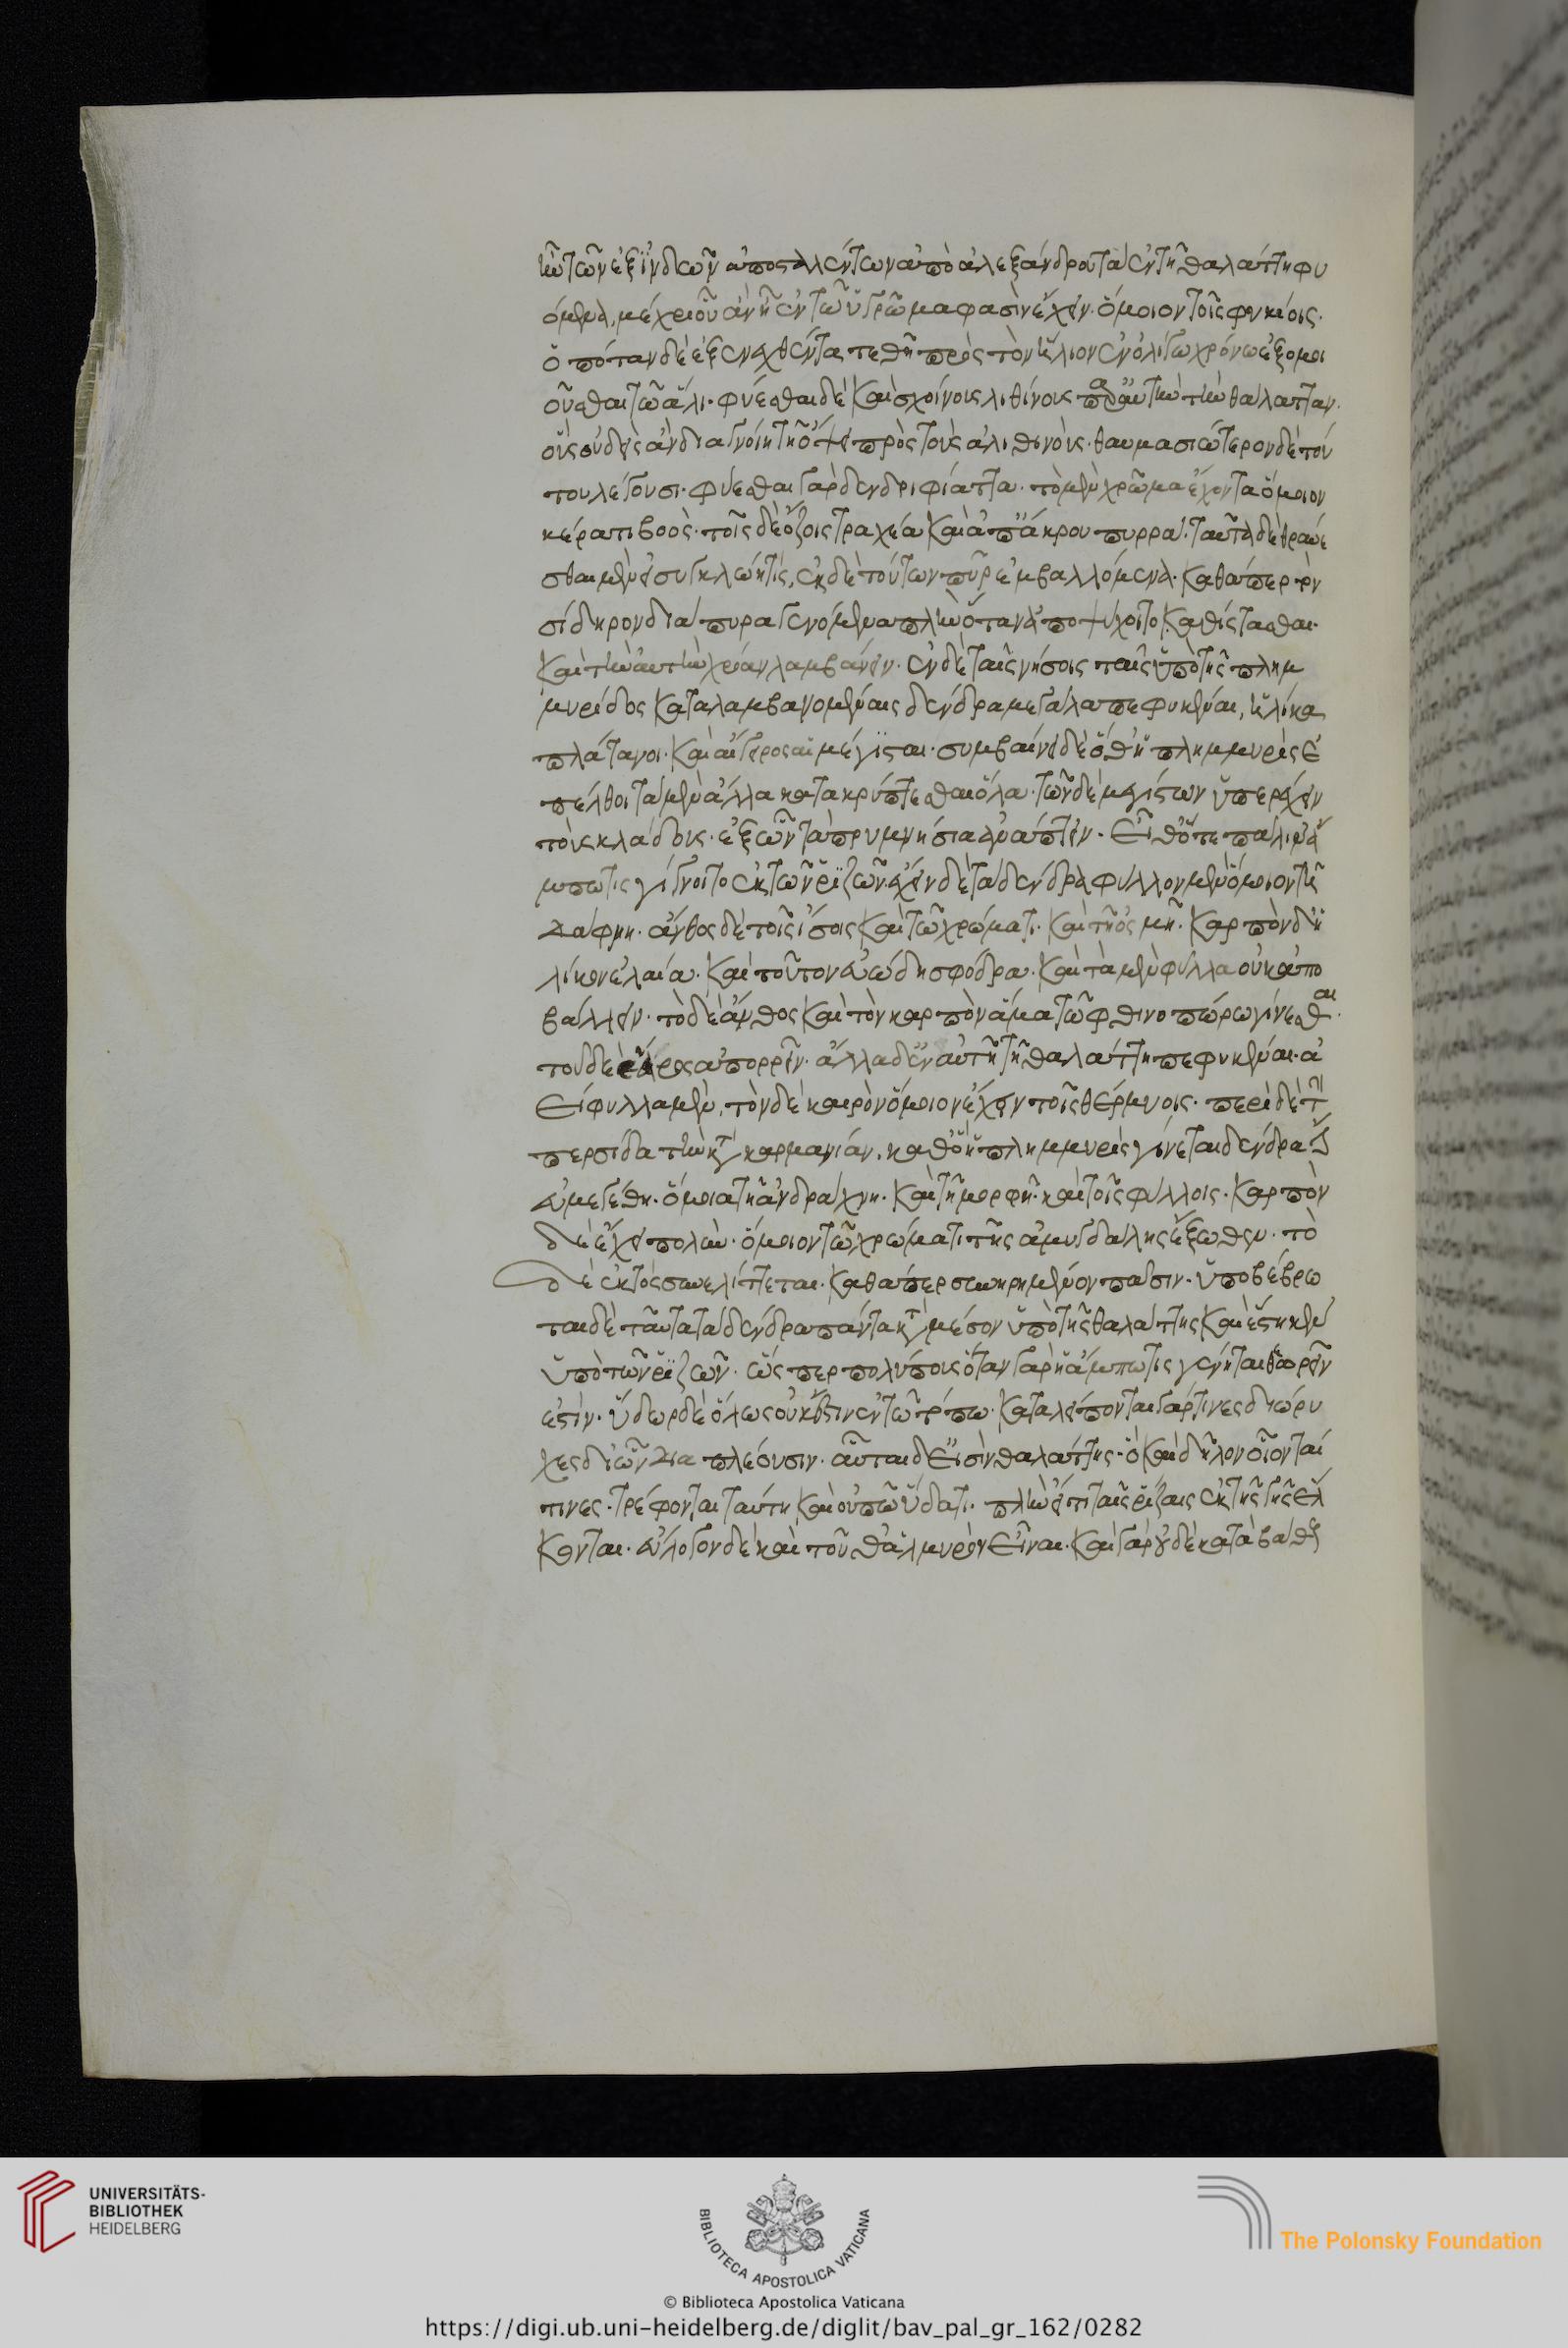 ὴν τῶν ἐξ ἰνδῶν ἀποσταλέντων ἀπὸ ἀλεξάνδρου τὰ ἐν τῇ θαλάττῃ φυ
όμενα, μέχρι οὗ ἂν ᾖ ἐν τῷ ὑγρῷ χρῶμα φασὶν ἔχειν ὅμοιον τοῖς φυκίοις.
ὁπόταν δὲ ἐξενεχθέντα τεθῇ πρὸς τὸν ἥλιον ἐν ὀλίγω χρόνω ἐξομοι
οῦσθαι τῷ ἁλί. φύεσθαι δὲ καὶ σχοίνους λιθίνους παρ αὐτὴν τὴν θάλατταν.
οὓς οὐδεὶς ἂν διαγνοίη τῇ ὄψει πρὸς τοὺς ἀληθινοὺς. θαυμασιώτερον δὲ τού
του λέγουσι. φύεσθαι γὰρ δενδρύφια ἄττα. τὸ μὲν χρῶμα ἔχοντα ὅμοιον
κέρατι βοὸς. τοῖς δὲ ὄζοις τραχέα καὶ ἀπ ἄκρου πυρρά. ταῦτα δὲ θραύε
σθαι μὲν εἰ συγκλώη τίς, ἐκ δὲ τούτων πῦρ ἐμβαλλόμενα. καθάπερ τὸν
σίδηρον διάπυρα γενόμενα πάλιν ὅταν ἀποψύχοιτο καθίστασθαι.
καὶ τὴν αὐτὴν χρόαν λαμβάνειν. ἐν δὲ ταῖς νήσοις ταῖς ὑπὸ τῆς πλημ
μυρίδος καταλαμβανομέναις δένδρα μεγάλα πεφυκέναι, ἡλίκα
πλάτανοι. καὶ αἴγειροι αἱ μέγισται. συμβαίνει δὲ ὅθ ἡ πλημμυρὶς ἐ
πέλθοι τὰ μὲν ἄλλα κατακρύπτεσθαι ὅλα. τῶν δὲ μεγίστων ὑπερέχειν
τοὺς κλάδους. ἐξ ὧν τὰ πρυμνήσια ἀνάπτειν. εἶθ ὅτε πάλιν ἄ
μπωτις γίγνοιτο ἐκ τῶν ῥιζῶν. ἔχειν δὲ τὰ δένδρα φύλλον μὲν ὅμοιον τῇ
δάφνῃ. ἄνθος δὲ τοῖς ἴοις καὶ τῷ χρώματι. καὶ τῇ ὀσμῇ. καρπὸν δὲ ἡ
λίκον ἐλαία. καὶ τοῦτον εὐώδη σφόδρα. καὶ τὰ μὲν φύλλα οὐκ ἀπο
βάλλειν. τὸ δὲ ἄνθος καὶ τὸν καρπὸν ἅμα τῷ φθινοπώρω γίνεσθαι.
τοῦ δὲ ἔαρος ἀπορρεῖν. ἄλλα δ ἐν αὐτῇ τῇ θαλάττῃ πεφυκέναι. ἀ
είφυλλα μὲν, τὸν δὲ καρπὸν ὅμοιον ἔχειν τοῖς θέρμοις. περὶ δὲ τὴν
περσίδα τὴν κατὰ καρμανίαν, καθ ὃ ἡ πλημμυρὶς γίνεται δένδρα ἐστὶν
εὐμεγέθη. ὅμοια τῇ ἀνδράχνῃ. καὶ τῇ μορφῇ. καὶ τοῖς φύλλοις. καρπὸν
δὲ ἔχει πολὺν. ὅμοιον τῷ χρώματι τῆς ἀμυγδάλης ἔξωθεν. τὸ
δὲ ἐκτὸς συνελίττεται. καθάπερ συνηρημένον πᾶσιν. ὑποβέβρω
ται δὲ ταῦτα τὰ δένδρα πάντα κατὰ μέσον ὑπὸ τῆς θαλάττης καὶ ἕστηκεν
ὑπὸ τῶν ῥιζῶν. ὥσπερ πολύπους ὅταν γὰρ ἡ ἄμπωτις γένηται θεωρεῖν
ἐστίν. ὕδωρ δὲ ὅλως οὐκ ἔστιν ἐν τῷ τόπω. καταλείπονται γάρ τινες διώρυ
χες δι ὧν διαπλέουσιν. αὗται δ εἰσὶν θαλάττης. ὃ καὶ δῆλον οἴονταί
τινες. τρέφονται ταύτῃ καὶ οὐ τῷ ὕδατι. πλὴν εἴ τι ταῖς ῥίζαις ἐκ τῆς γῆς ἕλ
κονται. εὔλογον δὲ καὶ τοῦθ ἁλμυρὸν εἶναι. καὶ γὰρ οὐδὲ κατὰ βάθος

UNIVERSITÄTS-
BIBLIOTHEK
HEIDELBERG
BIBLIOTECA APOSTOLICA VATICANA
The Polonsky Foundation
© Biblioteca Apostolica Vaticana
https://digi.ub.uni-heidelberg.de/diglit/bav_pal_gr_162/0282